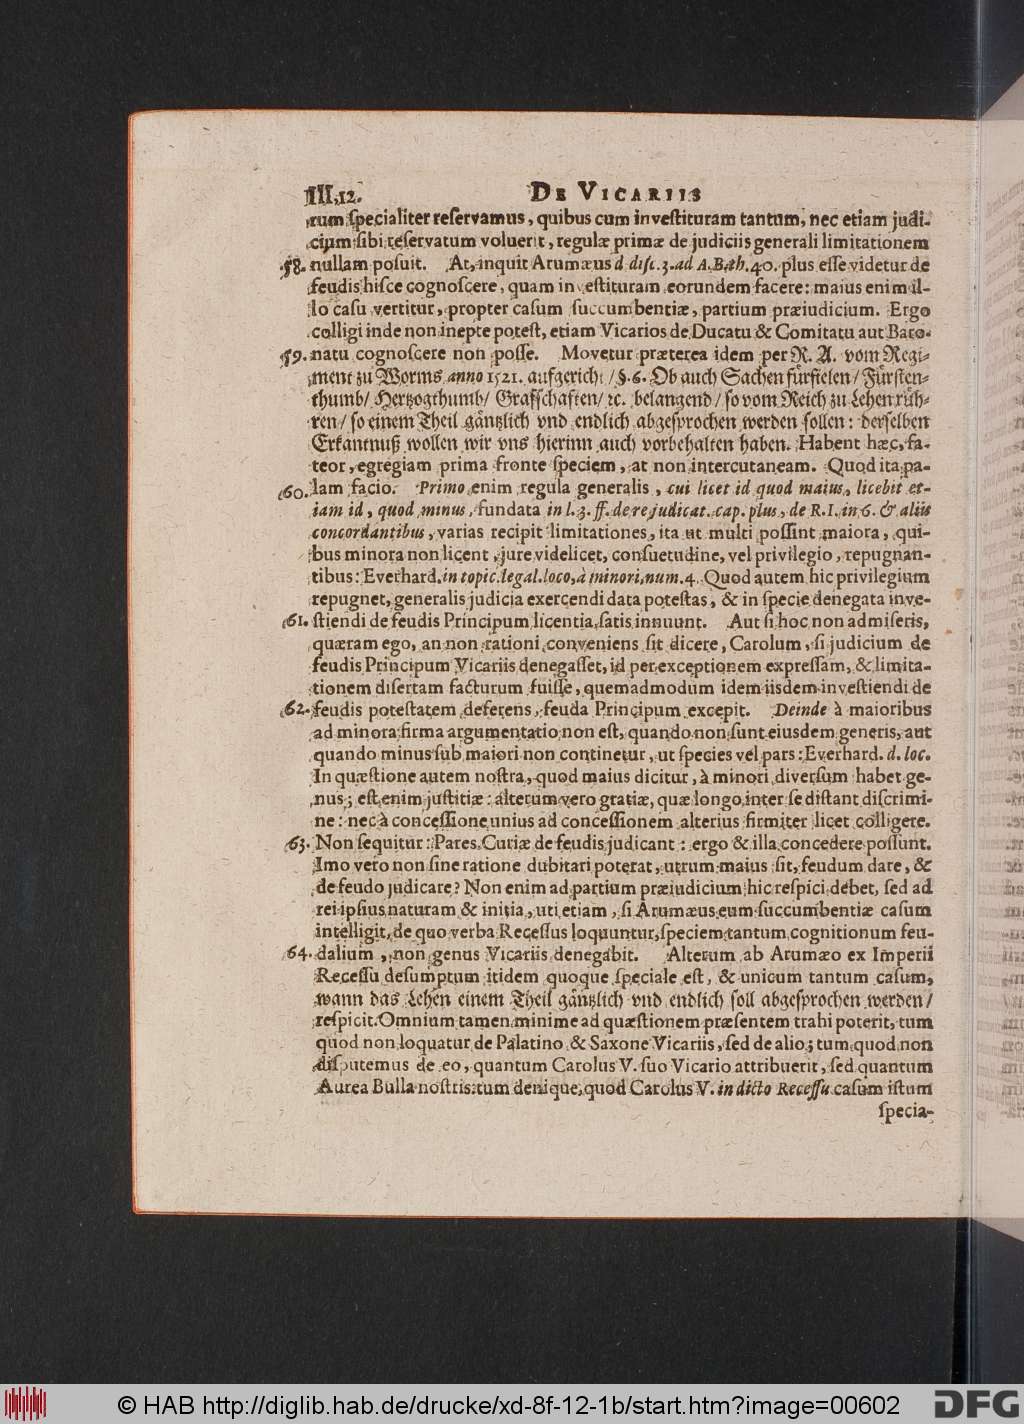 III,12. DE VICARIIS
rum specialiter reservamus, quibus cum investituram tantum, nec etiam judi-
cium sibi reservatum voluerit, regulæ primæ de judiciis generali limitationem
58. nullam posuit. At, inquit Arumæus d disc. 3. ad A.B. th. 40. plus esse videtur de
feudis hisce cognoscere, quam investituram eorundem facere: maius enim il-
lo casu vertitur, propter casum succumbentiæ, partium præiudicium. Ergo
colligi inde non inepte potest, etiam Vicarios de Ducatu & Comitatu aut Baro-
59. natu cognoscere non posse. Movetur præterea idem per R. A. vom Regi-
ment zu Worms anno 1521. aufgericht / §. 6. Ob auch Sachen fürfielen / Fürsten-
thumb / Hertzogthumb / Grafschafften / ꝛc. belangend / so vom Reich zu Lehen rüh-
ren / so einem Theil gäntzlich vnd endlich abgesprochen werden sollen: derselben
Erkäntnuß wollen wir vns hierinn auch vorbehalten haben. Habent hæc, fa-
teor, egregiam prima fronte speciem, at non intercutaneam. Quod ita pa-
60. lam facio. Primo enim regula generalis, cui licet id quod maius, licebit et-
iam id, quod minus, fundata in l. 3. ff. de re judicat. cap. plus, de R. I. in 6. & aliis
concordantibus, varias recipit limitationes, ita ut multi possint maiora, qui-
bus minora non licent, jure videlicet, consuetudine, vel privilegio, repugnan-
tibus: Everhard. in topic. legal. loco, à minori, num. 4. Quod autem hic privilegium
repugnet, generalis judicia exercendi data potestas, & in specie denegata inve-
61. stiendi de feudis Principum licentia, satis innuunt. Aut si hoc non admiseris,
quæram ego, an non rationi conveniens sit dicere, Carolum, si judicium de
feudis Principum Vicariis denegasset, id per exceptionem expressam, & limita-
tionem disertam facturum fuisse, quemadmodum idem iisdem investiendi de
62. feudis potestatem deferens, feuda Principum excepit. Deinde à maioribus
ad minora firma argumentatio non est, quando non sunt eiusdem generis, aut
quando minus sub maiori non continetur, ut species vel pars: Everhard. d. loc.
In quæstione autem nostra, quod maius dicitur, à minori diversum habet ge-
nus; est enim justitiæ: alterum vero gratiæ, quæ longo inter se distant discrimi-
ne: nec à concessione unius ad concessionem alterius firmiter licet colligere.
63. Non sequitur: Pares Curiæ de feudis judicant: ergo & illa concedere possunt.
Imo vero non sine ratione dubitari poterat, utrum maius sit, feudum dare, &
de feudo judicare? Non enim ad partium præiudicium hic respici debet, sed ad
rei ipsius naturam & initia, uti etiam, si Arumæus eum succumbentiæ casum
intelligit, de quo verba Recessus loquuntur, speciem tantum cognitionum feu-
64. dalium, non genus Vicariis denegabit. Alterum ab Arumæo ex Imperii
Recessu desumptum itidem quoque speciale est, & unicum tantum casum,
wann das Lehen einem Theil gäntzlich vnd endlich soll abgesprochen werden /
respicit. Omnium tamen minime ad quæstionem præsentem trahi poterit, tum
quod non loquatur de Palatino & Saxone Vicariis, sed de alio; tum quod non
disputemus de eo, quantum Carolus V. suo Vicario attribuerit, sed quantum
Aurea Bulla nostris: tum denique, quod Carolus V. in dicto Recessu casum istum
specia-
© HAB http://diglib.hab.de/drucke/xd-8f-12-1b/start.htm?image=00602 DFG